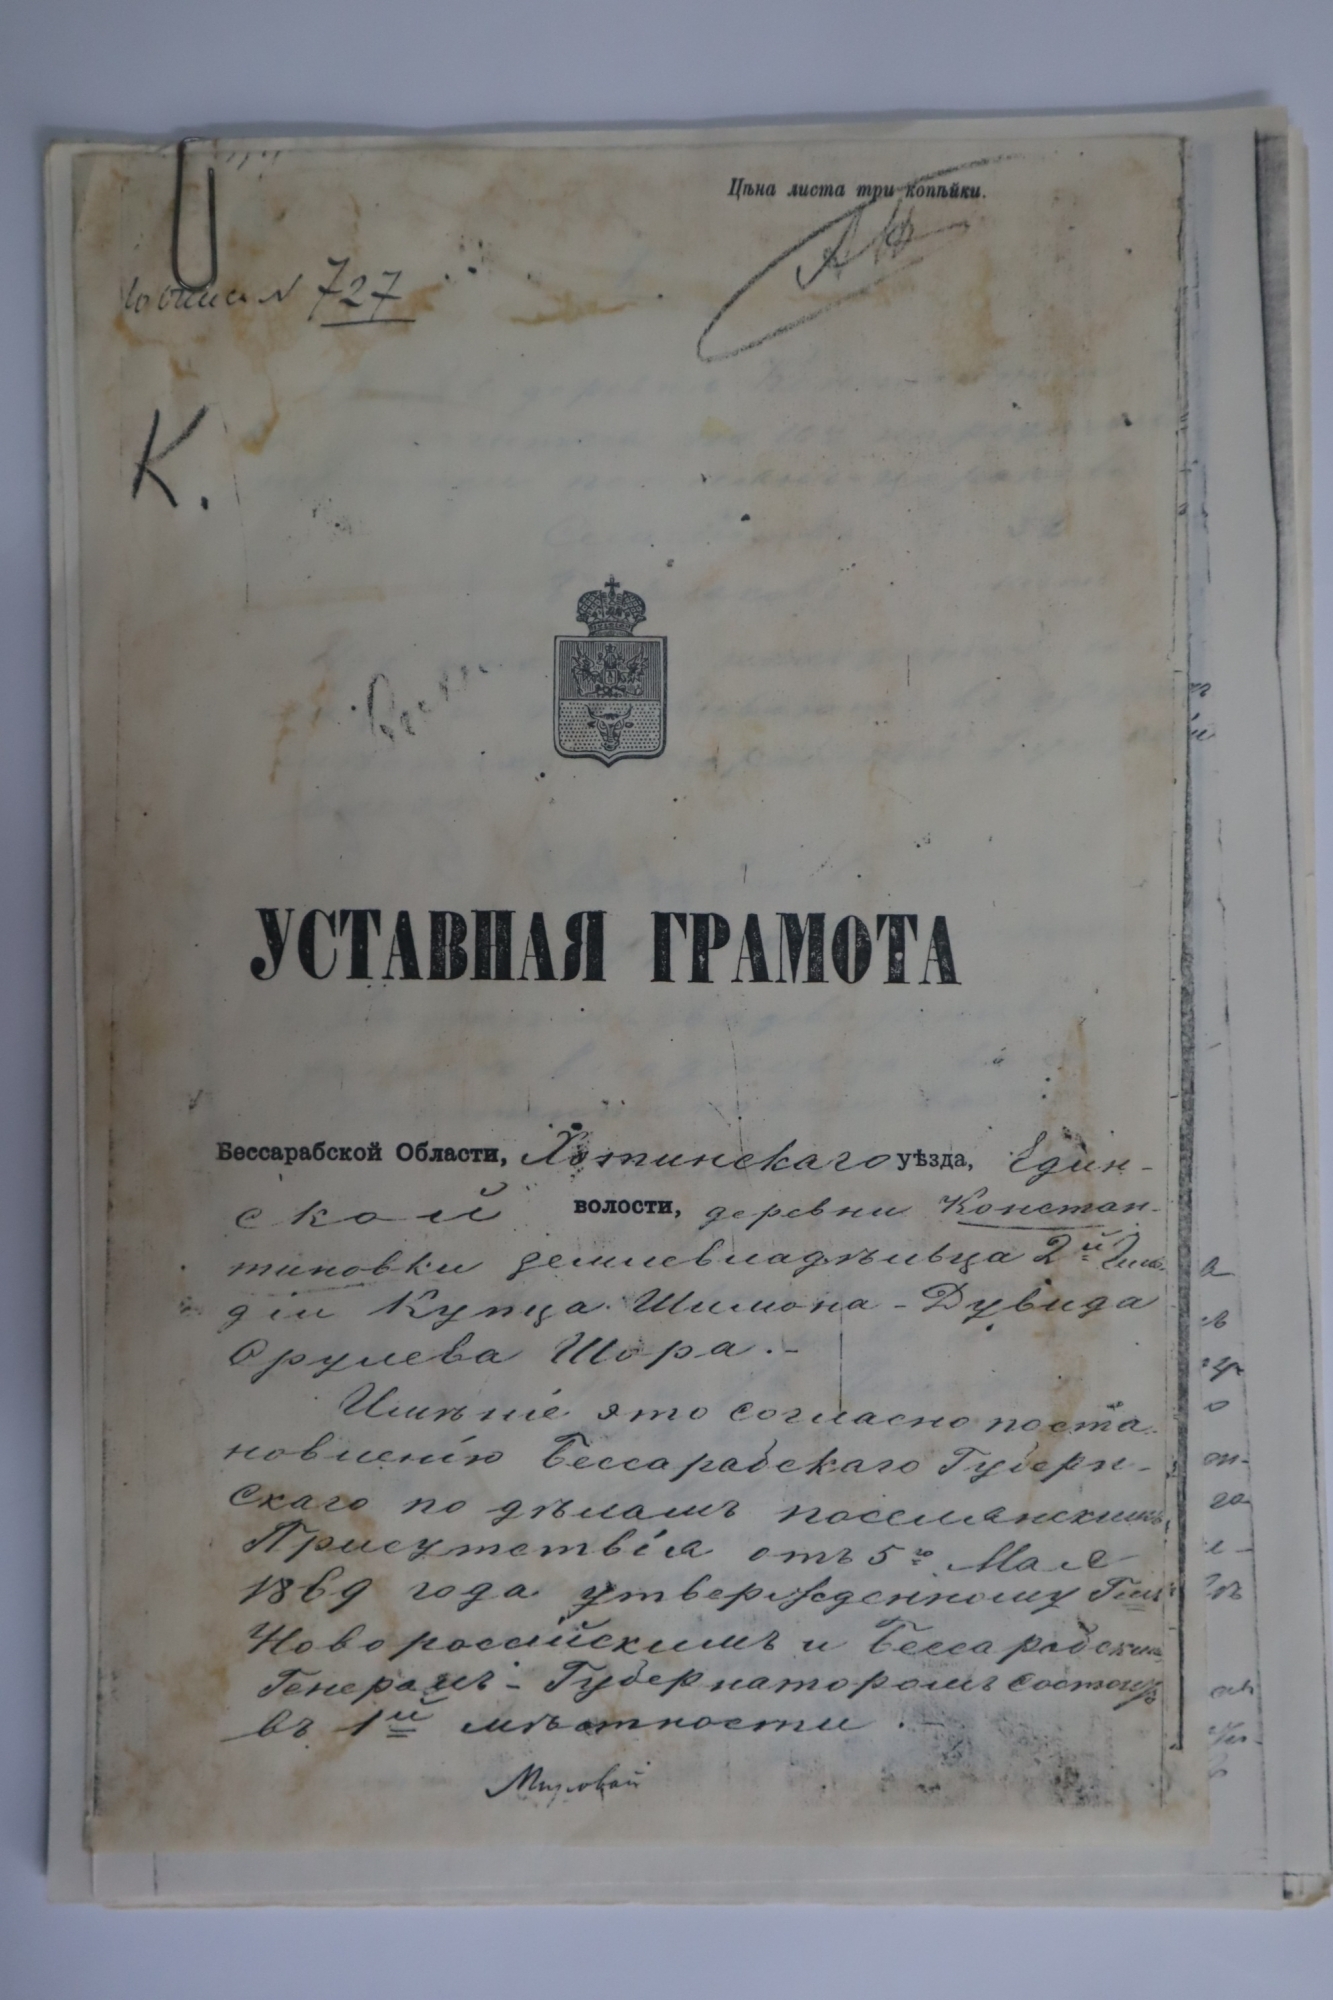 Цѣна листа три копѣйки.
N 727
К.
УСТАВНАЯ ГРАМОТА
Бессарабской Области, Хотинскаго уѣзда, Един-
ской волости, деревни Констан-
тиновки землевладѣльца 2й Гиль-
діи Купца Шимона-Дувида
Срулева Шора.-
Имѣніе это согласно поста-
новленію Бессарабскаго Губерн-
скаго по дѣламъ поселянскимъ
Присутствія отъ 5го Мая
1869 года утвержденному
Новороссійскимъ и Бессарабским
Генералъ-Губернаторомъ состоитъ
въ 1й мѣстности.-
Мировой